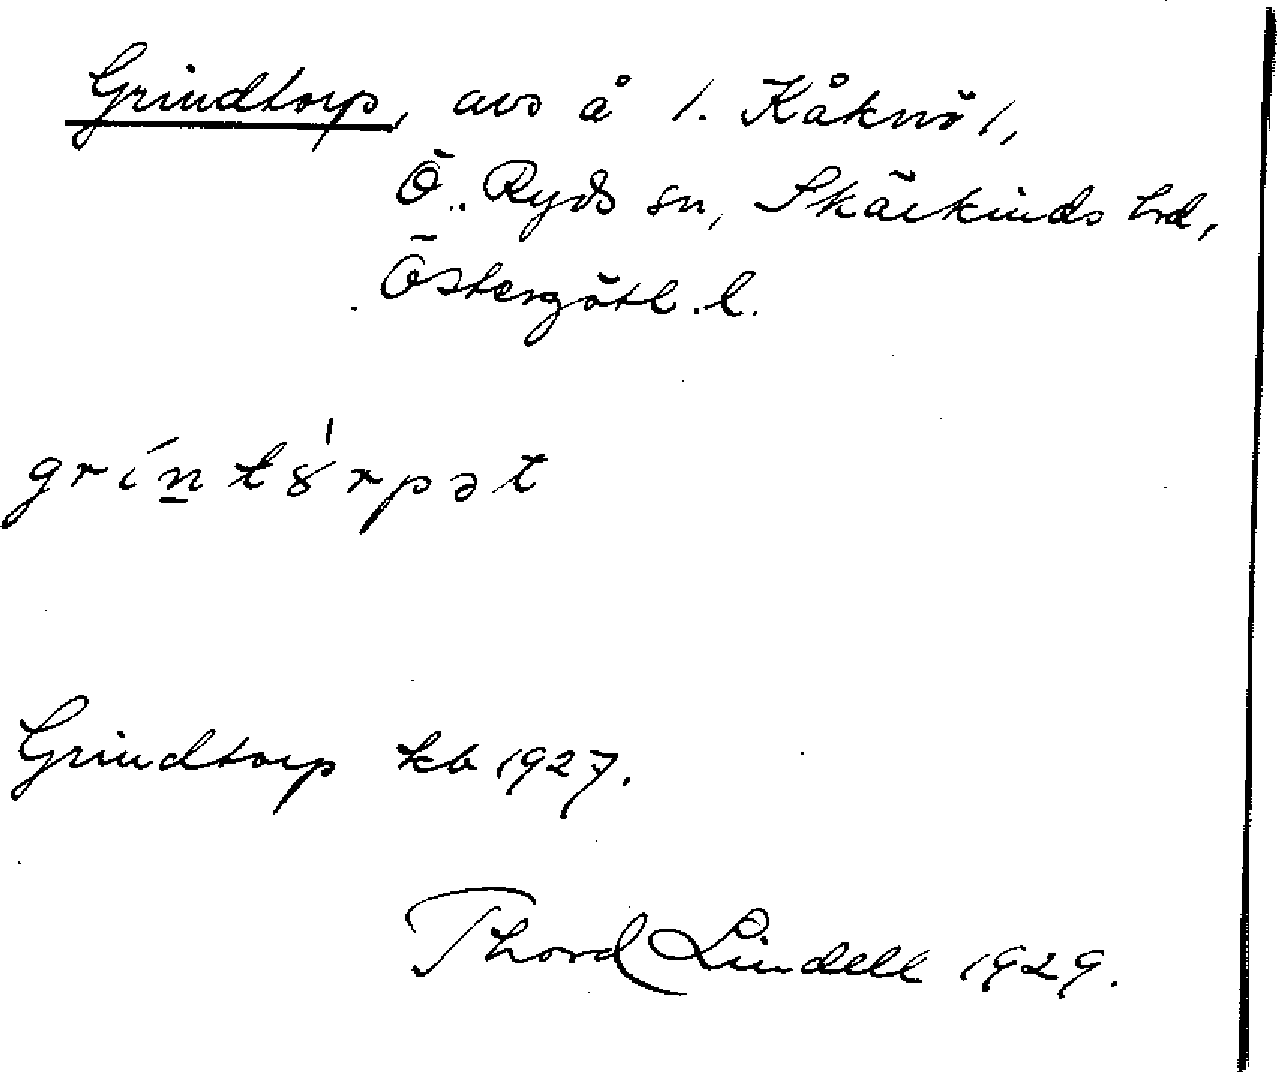 Grindtorp, avs å 1. Kåknö 1,
Ö. Ryds sn, Skärkinds hd,
Östergötl. l.
grínt8́rpət
Grindtorp kb 1927.
Thord Lindell 1929.